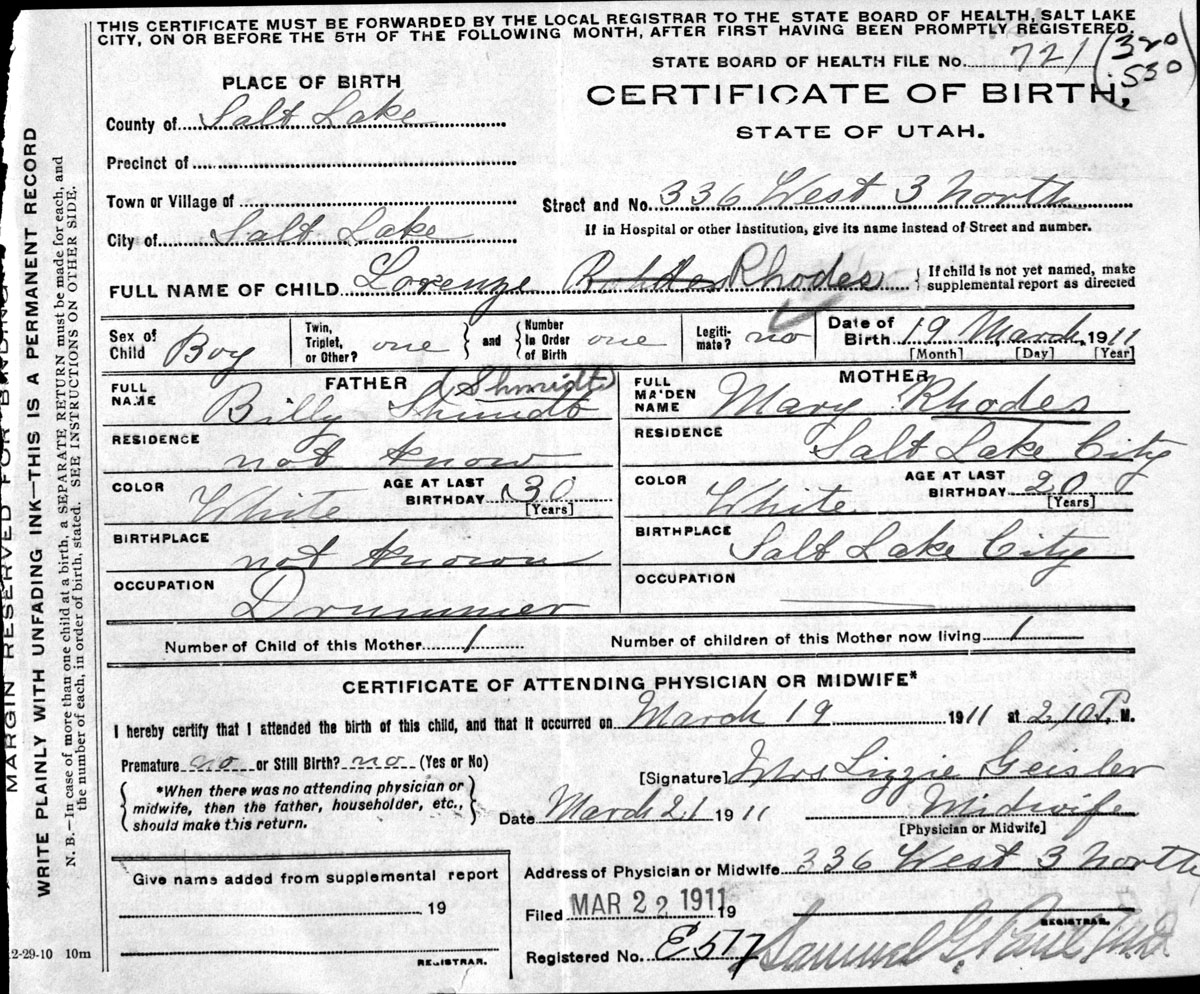 THIS CERTIFICATE MUST BE FORWARDED BY THE LOCAL REGISTRAR TO THE STATE BOARD OF HEALTH, SALT LAKE
CITY, ON OR BEFORE THE 5TH OF THE FOLLOWING MONTH, AFTER FIRST HAVING BEEN PROMPTLY REGISTERED.
STATE BOARD OF HEALTH FILE No. 721 (320
530)
PLACE OF BIRTH
CERTIFICATE OF BIRTH,
STATE OF UTAH.
County of Salt Lake
Precinct of
Town or Village of
Street and No. 336 West 3 North
If in Hospital or other Institution, give its name instead of Street and number.
City of Salt Lake
FULL NAME OF CHILD Lorenze Rhodes { If child is not yet named, make
supplemental report as directed
Sex of Child Boy
Twin, Triplet, or Other? one } and { Number In Order of Birth one
Legiti-mate? no
Date of Birth 19 March, 1911
[Month] [Day] [Year]
FATHER (Shmidt)
FULL NAME Billy Shmidt
RESIDENCE not know
COLOR White AGE AT LAST BIRTHDAY 30 [Years]
BIRTHPLACE not known
OCCUPATION Drummer
MOTHER
FULL MAIDEN NAME Mary Rhodes
RESIDENCE Salt Lake City
COLOR White AGE AT LAST BIRTHDAY 20 [Years]
BIRTHPLACE Salt Lake City
OCCUPATION
Number of Child of this Mother 1 Number of children of this Mother now living 1
CERTIFICATE OF ATTENDING PHYSICIAN OR MIDWIFE*
I hereby certify that I attended the birth of this child, and that it occurred on March 19 1911 at 2,10 P. M.
Premature no or Still Birth? no (Yes or No)
{ *When there was no attending physician or
midwife, then the father, householder, etc.,
should make this return. }
[Signature] Mrs Lizzie Geisler
Date March 21 1911 Midwife
[Physician or Midwife]
Give name added from supplemental report
19
REGISTRAR.
Address of Physician or Midwife 336 West 3 North
Filed MAR 22 1911 19
REGISTRAR.
Registered No. E 577 Samuel G. Paul M.D.
2-29-10 10m
MARGIN RESERVED FOR BINDING
WRITE PLAINLY WITH UNFADING INK—THIS IS A PERMANENT RECORD
N. B.—In case of more than one child at a birth, a SEPARATE RETURN must be made for each, and
the number of each, in order of birth, stated. SEE INSTRUCTIONS ON OTHER SIDE.